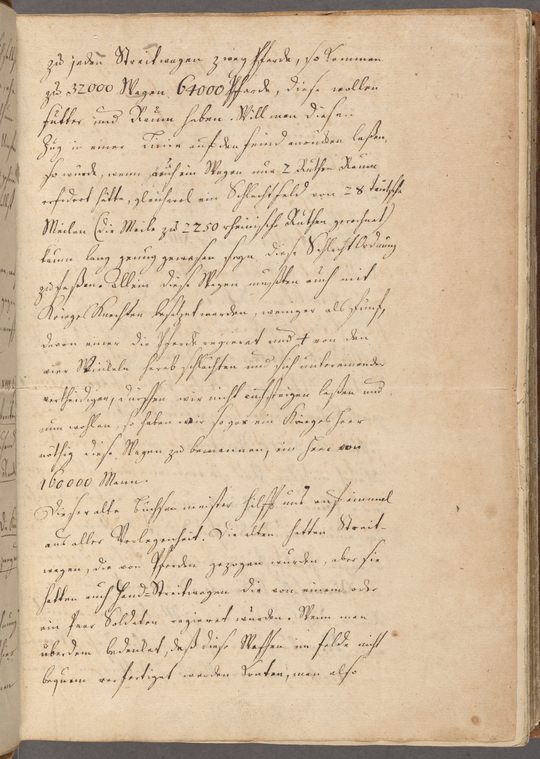 zu jeden Streitwagen zwey Pferde, so kommen
zu 32000 Wagen 64000 Pferde, diese wollen
Futter und Raum haben. Will man diesen
Zug in einer Linie auf den Feind anrücken laßen,
so würde, wenn auch ein Wagen nur 2 Ruthen Raum
erfodert hätte, gleichwol ein Schlachtfeld von 28 teutsche
Meilen (die Meile zu 2250 rheinische Ruthen gerechnet)
kaum lang genug gewesen seyn, diese Schlacht Ordnung
zu faßen. Allein diese Wagen mußten auch mit
Krieges Knechten besetzt werden, weniger als fünf,
deren einer die Pferde regieret und 4 von den
vier Winkeln herab fechten und sich untereinander
vertheidigen, dürffen wir nicht aufsteigen laßen und
nun wohlan, so haben wir sogar ein Krieges Heer
nöthig diese Wagen zu bemannen, ein Heer von
160000 Mann.
Dieser alte Büchsenmeister hilfft uns auf einmal
aus aller Verlegenheit. Die Alten hatten Streit-
wagen, die von Pferden gezogen wurden, aber sie
hatten auch Hand-Streitwagen die von einem oder
ein Paar Soldaten regieret wurden. Wenn man
überdem bedenket, daß diese Waffen im Felde nicht
bequem verfertiget werden konten, man also